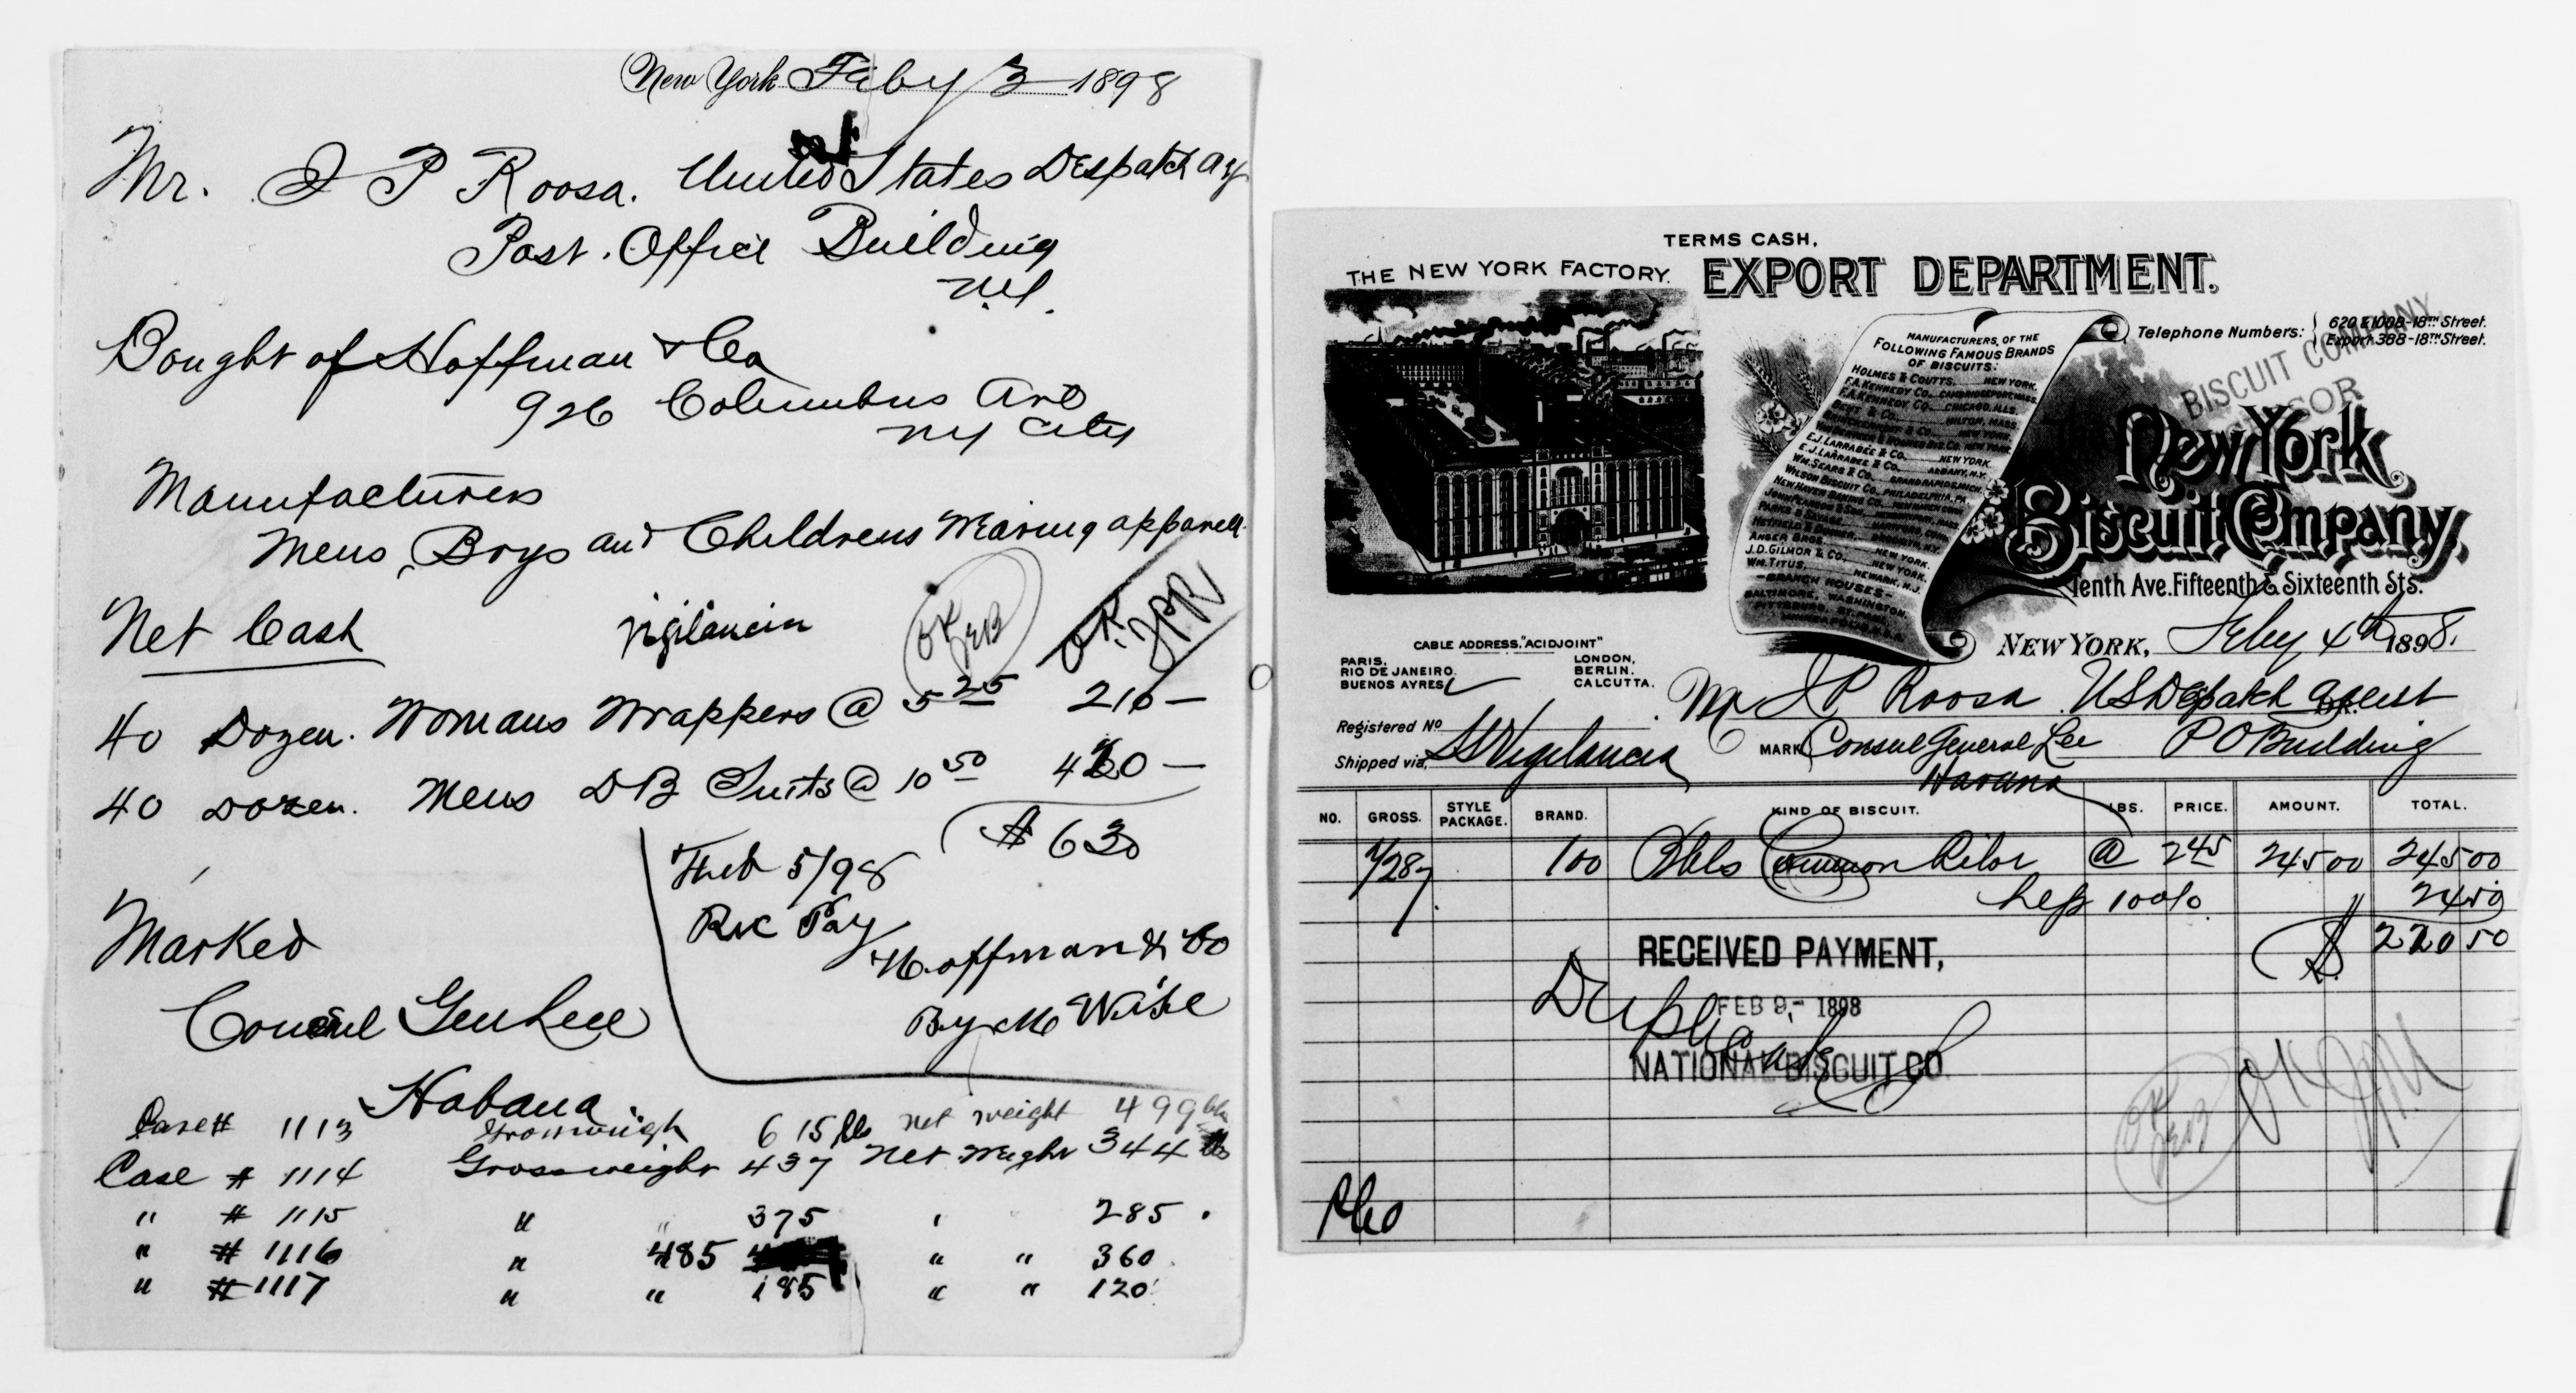 New York Feby 3 1898
Mr. I P Roosa. United States Despatch Agt
Post. Office Building
N.Y.
Bought of Hoffman & Co
926 Columbus Ave
NY City
Manufacturers
Mens, Boys and Childrens Wearing apparell
Net Cash
Vigilancia
OK JEB
OK. JPR
40 Dozen. Womans Wrappers @ 5 25 210 —
40 Dozen. Mens DB Suits @ 10 50 420 —
$ 630
Feb 5/98
Rec Pay
Hoffman & Co
By M Wise
Marked
Consul Gen Lee
Habana
Case # 1113 Gross weigh 615 lbs net weight 499 lbs
Case # 1114 Gross weight 437 Net Weight 344 lbs
" # 1115 " " 375 " " 285 .
" # 1116 " 485 " " 360
" # 1117 " " 185 " " 120
TERMS CASH.
THE NEW YORK FACTORY. EXPORT DEPARTMENT.
Telephone Numbers: 620 & 1008-18TH Street.
Export 388-18TH Street.
MANUFACTURERS OF THE
FOLLOWING FAMOUS BRANDS
OF BISCUITS:
HOLMES & COUTTS. NEW YORK.
F.A. KENNEDY CO. CAMBRIDGEPORT, MASS.
F.A. KENNEDY CO. CHICAGO, ILLS.
BENT & CO. MILTON, MASS.
E.J. LARRABEE & CO. NEW YORK.
E.J. LARRABEE & CO. ALBANY, N.Y.
WM. SEARS & CO. GRAND RAPIDS, MICH.
WILSON BISCUIT CO. PHILADELPHIA, PA.
NEW HAVEN BAKING CO. NEW HAVEN CONN.
PARKS & SAVAGE. HARTFORD, CONN.
HETFIELD & DUCKER. BROOKLYN, N.Y.
ANGER BROS. NEW YORK.
J.D. GILMOR & CO. NEW YORK.
WM. TITUS. NEWARK, N.J.
-BRANCH HOUSES-
BALTIMORE, WASHINGTON,
PITTSBURG, ST. PAUL,
BISCUIT COMPANY
New York
Biscuit Company,
Tenth Ave. Fifteenth & Sixteenth Sts.
CABLE ADDRESS, "ACIDJOINT"
PARIS, LONDON,
RIO DE JANEIRO BERLIN.
BUENOS AYRES CALCUTTA.
NEW YORK, Feby 4th 1898.
Mr I P Roosa US Despatch Agent
Registered No
MARK Consul General Lee P O Building
Shipped via, SS Vigilancia
Havana
NO. GROSS. STYLE PACKAGE. BRAND. KIND OF BISCUIT. LBS. PRICE. AMOUNT. TOTAL.
1/287 100 Bbls Common Pilot @ 245 245 00 245 00
Less 10 0/0 24 50
$ 220 50
RECEIVED PAYMENT,
Duplicate
FEB 9- 1898
NATIONAL BISCUIT CO.
OK JEB
OK JPR